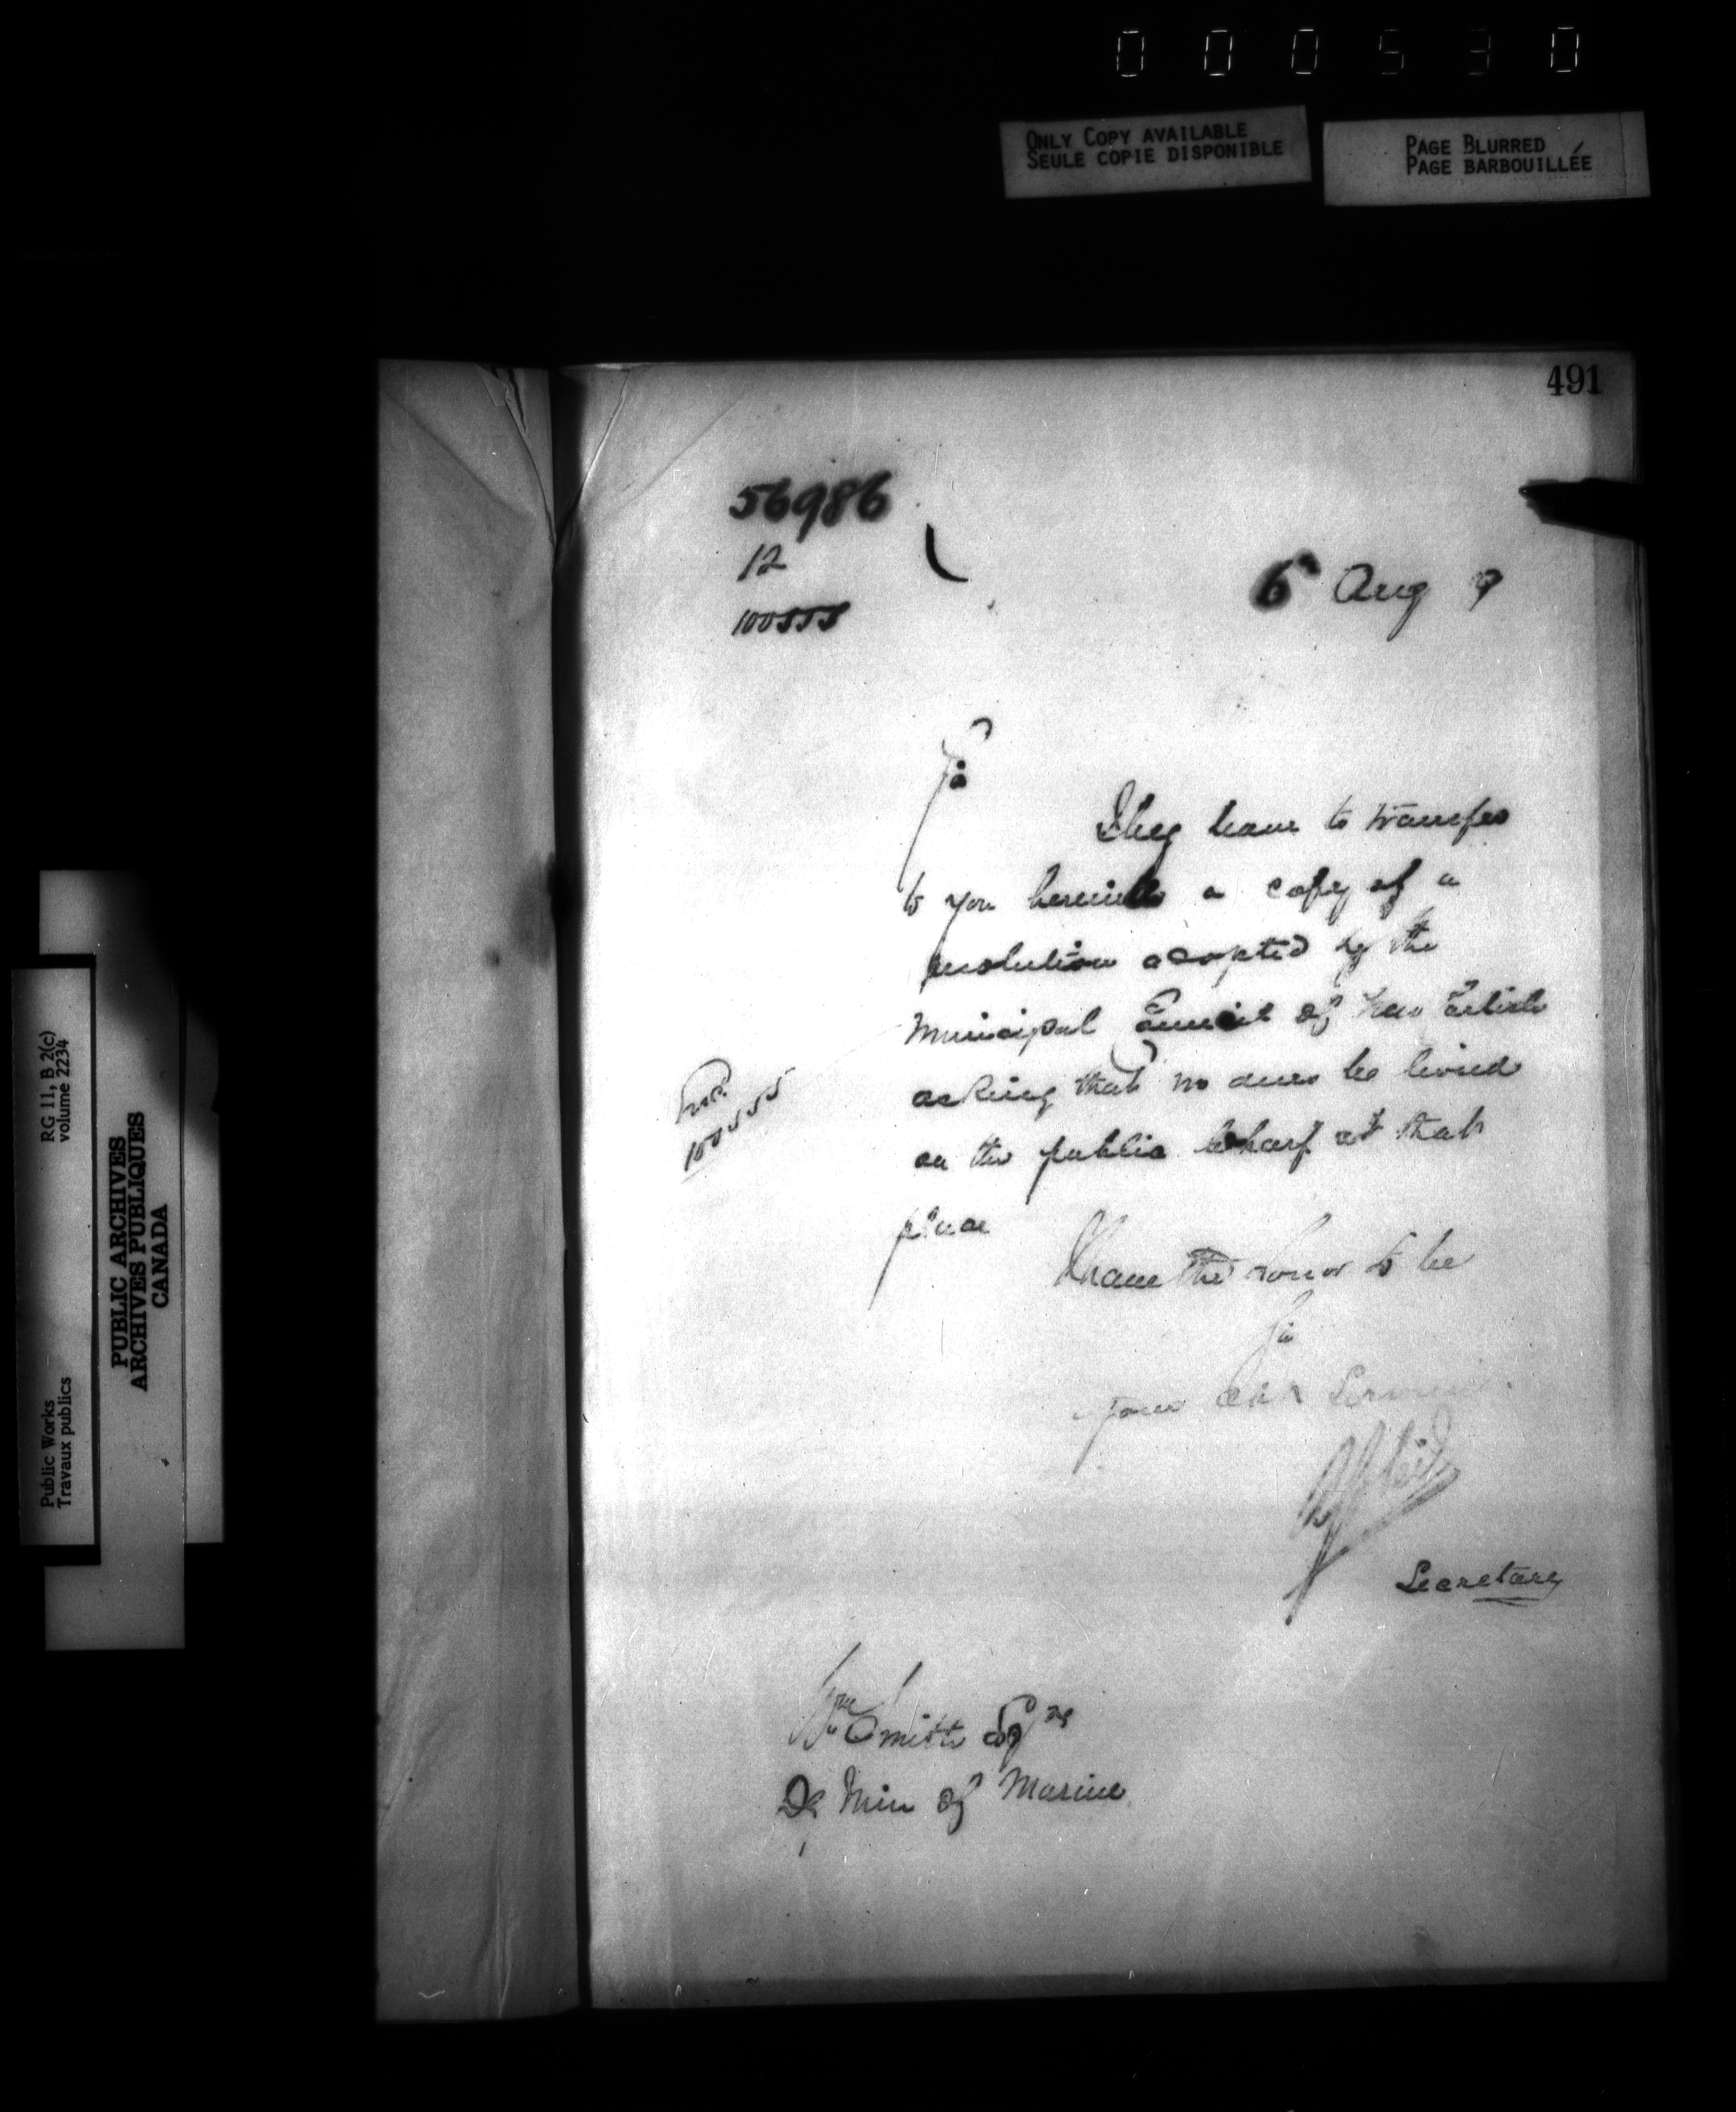 000530
ONLY COPY AVAILABLE
SEULE COPIE DISPONIBLE
PAGE BLURRED
PAGE BARBOUILLÉE
491
56986
12
100555
6 Aug 9
Sir
I beg leave to transfer
to you herewith a copy of a
resolution adopted by the
Municipal Council of New Carlisle
asking that no dues be levied
on the public wharf at that
place
Encl
100555
I have the honor to be
Sir
Your Obt Servant
Secretary
Wm Smith Esqre
Dy Min of Marine
Public Works
Travaux publics
RG 11, B 2(c)
volume 2234
PUBLIC ARCHIVES
ARCHIVES PUBLIQUES
CANADA